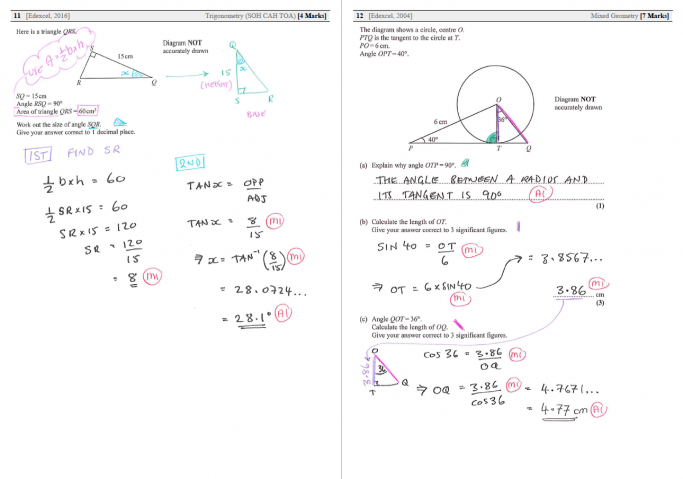 11 [Edexcel, 2016] Trigonometry (SOH CAH TOA) [4 Marks]
Here is a triangle QRS.
USE A = ½bxh
S
15 cm
x
R
Q
Diagram NOT
accurately drawn
Q
x
15
(HEIGHT)
S
R
BASE
SQ = 15 cm
Angle RSQ = 90°
Area of triangle QRS = 60 cm²
Work out the size of angle SQR.
Give your answer correct to 1 decimal place.
1ST FIND SR
½ bxh = 60
½ SR x 15 = 60
SR x 15 = 120
SR = 120/15
= 8 M1
2ND
TAN x = OPP/ADJ
TAN x = 8/15 M1
⇒ x = TAN⁻¹(8/15) M1
= 28.0724...
= 28.1° A1
12 [Edexcel, 2004] Mixed Geometry [7 Marks]
The diagram shows a circle, centre O.
PTQ is the tangent to the circle at T.
PO = 6 cm.
Angle OPT = 40°.
O
36°
6 cm
40°
P
T
Q
Diagram NOT
accurately drawn
(a) Explain why angle OTP = 90°.
THE ANGLE BETWEEN A RADIUS AND
ITS TANGENT IS 90° A1
(1)
(b) Calculate the length of OT.
Give your answer correct to 3 significant figures.
SIN 40 = OT/6 M1
⇒ OT = 6 x SIN 40 M1
= 3.8567...
3.86 M1 cm
(3)
(c) Angle QOT = 36°.
Calculate the length of OQ.
Give your answer correct to 3 significant figures.
O
36
3.86
T
Q
COS 36 = 3.86/OQ M1
⇒ OQ = 3.86/COS 36 M1 = 4.7671...
= 4.77 cm A1